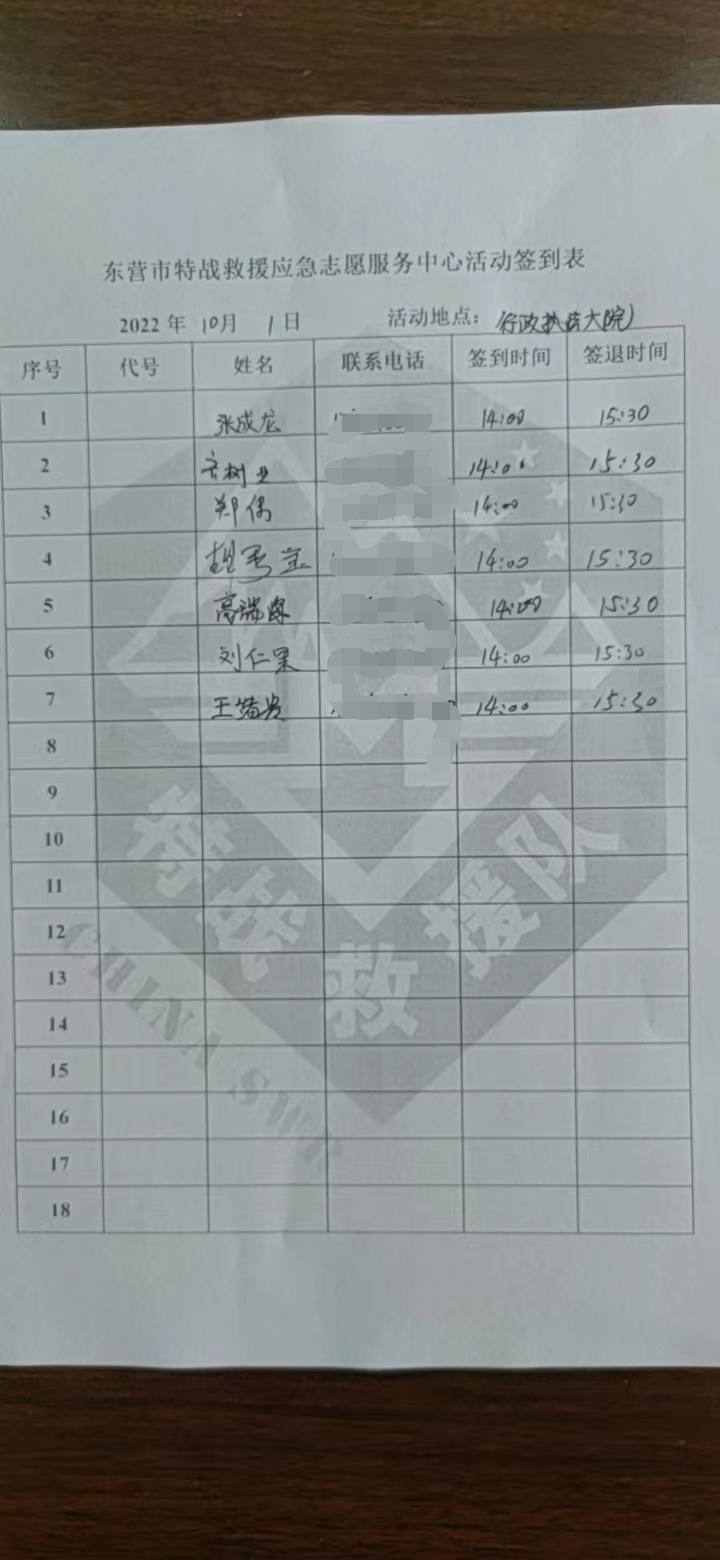 东营市特战救援应急志愿服务中心活动签到表
2022 年 10月 1日 活动地点：行政执法大院
序号 代号 姓名 联系电话 签到时间 签退时间
1 张成龙 14:00 15:30
2 14:00 15:30
3 郑偶 14:00 15:30
4 14:00 15:30
5 14:00 15:30
6 刘仁果 14:00 15:30
7 14:00 15:30
8
9
10
11
12
13
14
15
16
17
18
特战救援队
CHINA SWR